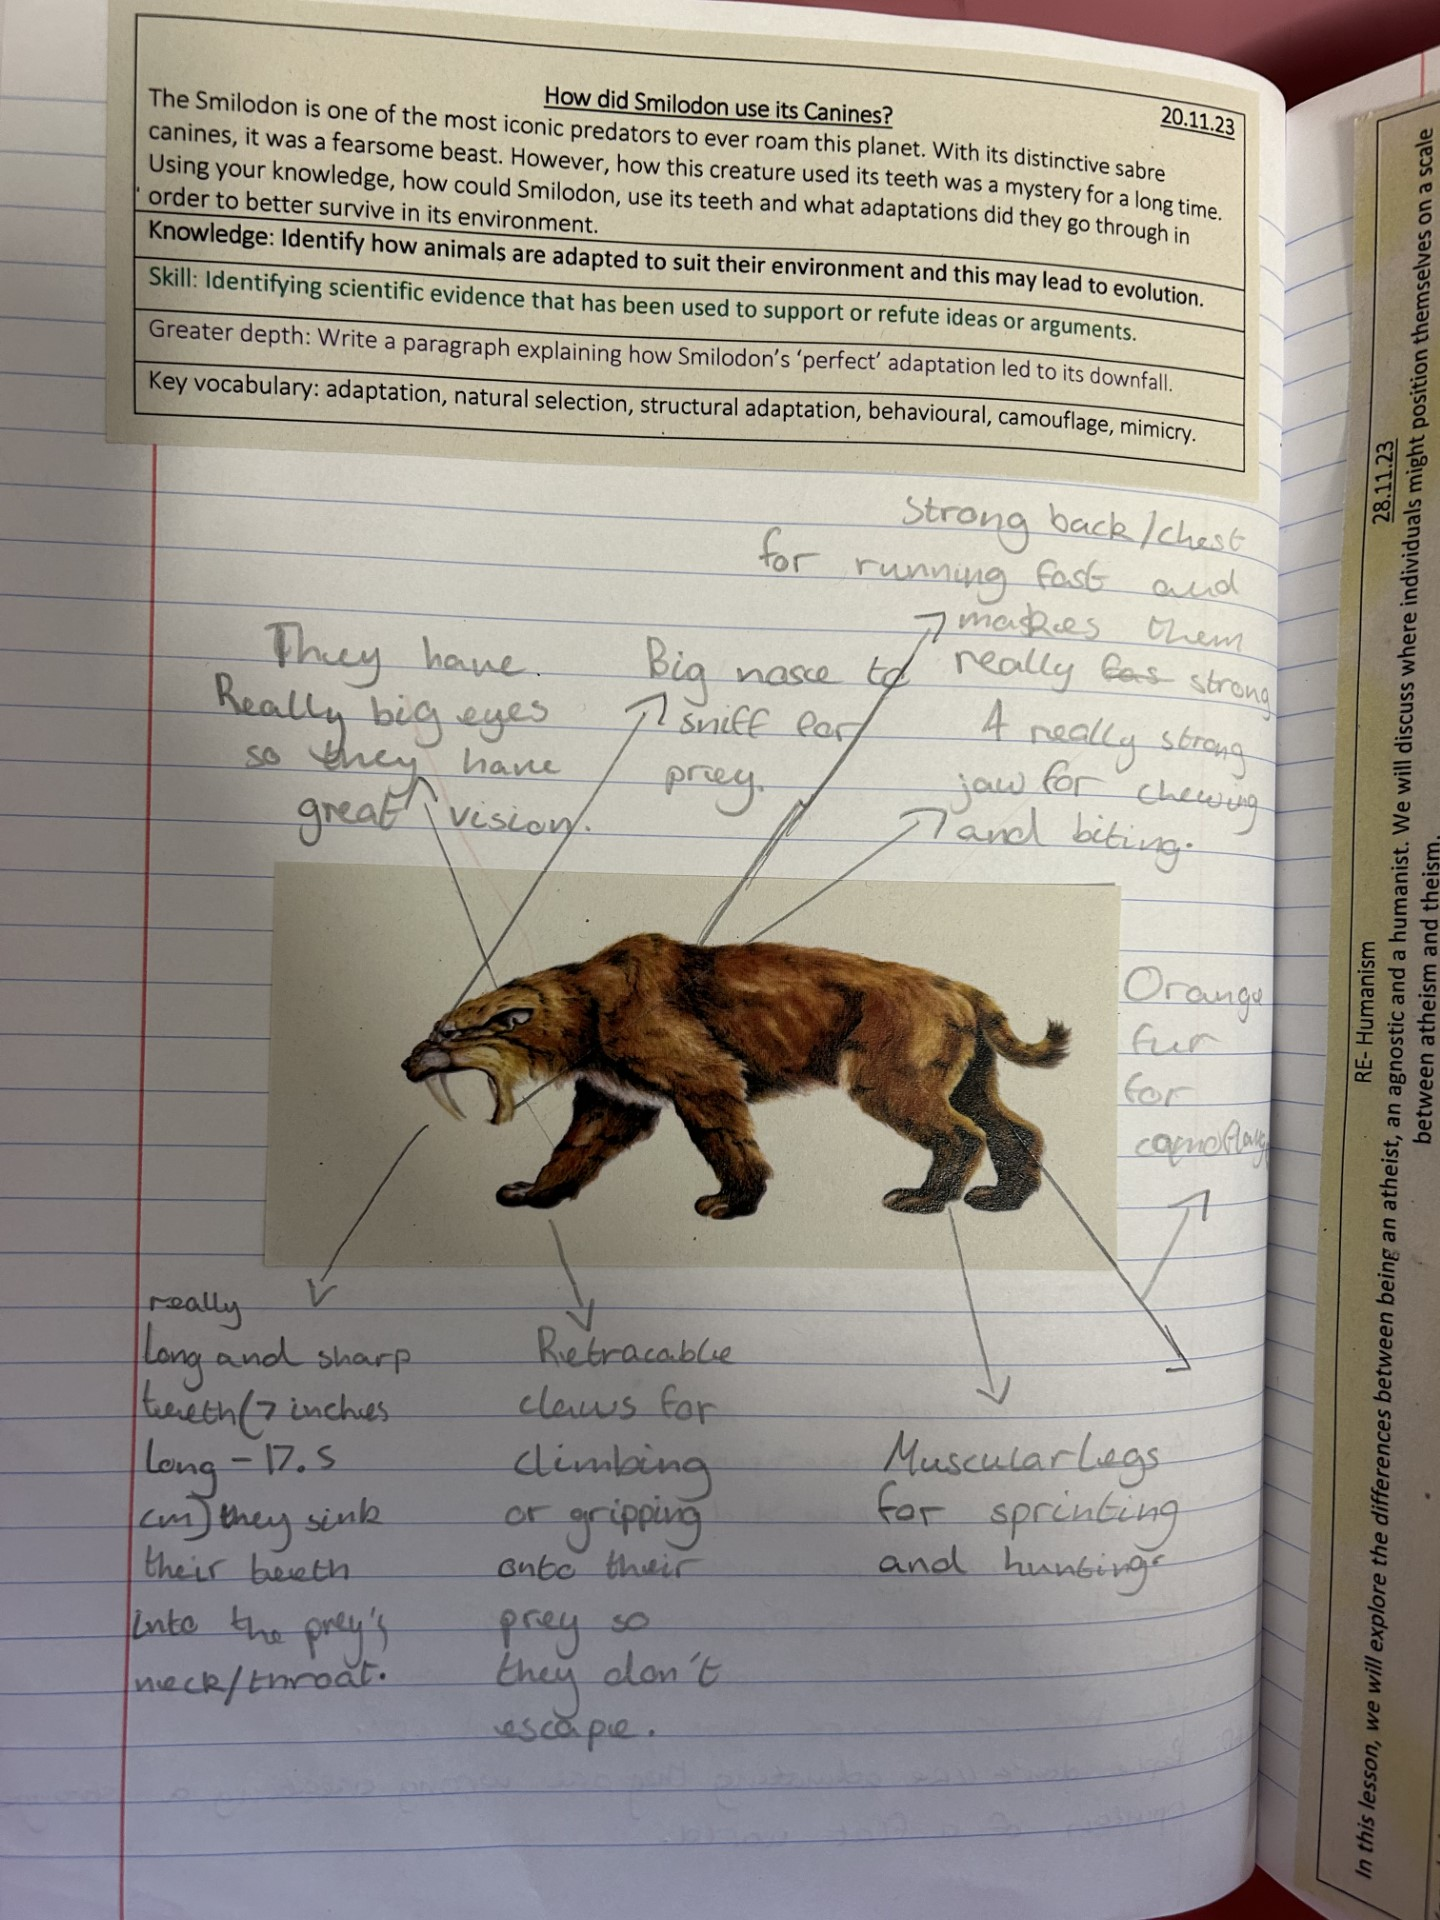 How did Smilodon use its Canines?
20.11.23
The Smilodon is one of the most iconic predators to ever roam this planet. With its distinctive sabre
canines, it was a fearsome beast. However, how this creature used its teeth was a mystery for a long time.
Using your knowledge, how could Smilodon, use its teeth and what adaptations did they go through in
order to better survive in its environment.
Knowledge: Identify how animals are adapted to suit their environment and this may lead to evolution.
Skill: Identifying scientific evidence that has been used to support or refute ideas or arguments.
Greater depth: Write a paragraph explaining how Smilodon's 'perfect' adaptation led to its downfall.
Key vocabulary: adaptation, natural selection, structural adaptation, behavioural, camouflage, mimicry.
They have.
Really big eyes
so they have
great vision.
Big nosce to
sniff for
prey.
Strong back/chest
for running fast and
makes them
really fas strong
A really strong
jaw for chewing
and biting.
Orange
fur
for
really
long and sharp
teeth(7 inches
long - 17.5
cm) they sink
their teeth
into the prey's
neck/throat.
Retracable
claws for
climbing
or gripping
onto their
prey so
they don't
escape.
Muscular legs
for sprinting
and hunting
RE- Humanism
28.11.23
In this lesson, we will explore the differences between being an atheist, an agnostic and a humanist. We will discuss where individuals might position themselves on a scale
between atheism and theism.